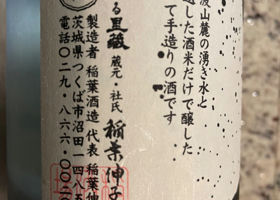 波山麓の湧き水と
した酒米だけで醸した
て手造りの酒です
る里敏 蔵元・杜氏 稲葉伸子
製造者 稲葉酒造 代表 稲葉伸
茨城県つくば市沼田一四八五
電話〇二九・八六六・〇〇二〇